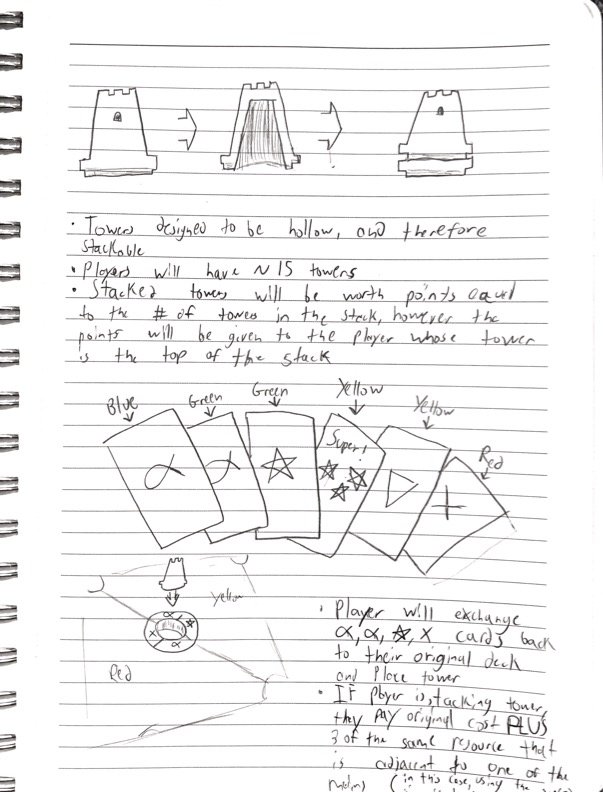 • Towers designed to be hollow, and therefore
stackable
• Players will have ~ 15 towers
• Stacked towers will be worth points equal
to the # of towers in the stack, however the
points will be given to the player whose tower
is the top of the stack
Blue
Green
Green
Yellow
Yellow
Red
α
α
☆
Super!
☆☆☆
▷
+
Yellow
Red
α
☆
x
x
α
• Player will exchange
α, α, ☆, x cards back
to their original deck
and place tower
• If player is stacking tower,
they PAY original cost PLUS
3 of the same resource that
is adjacent to one of the
(in this case, using the